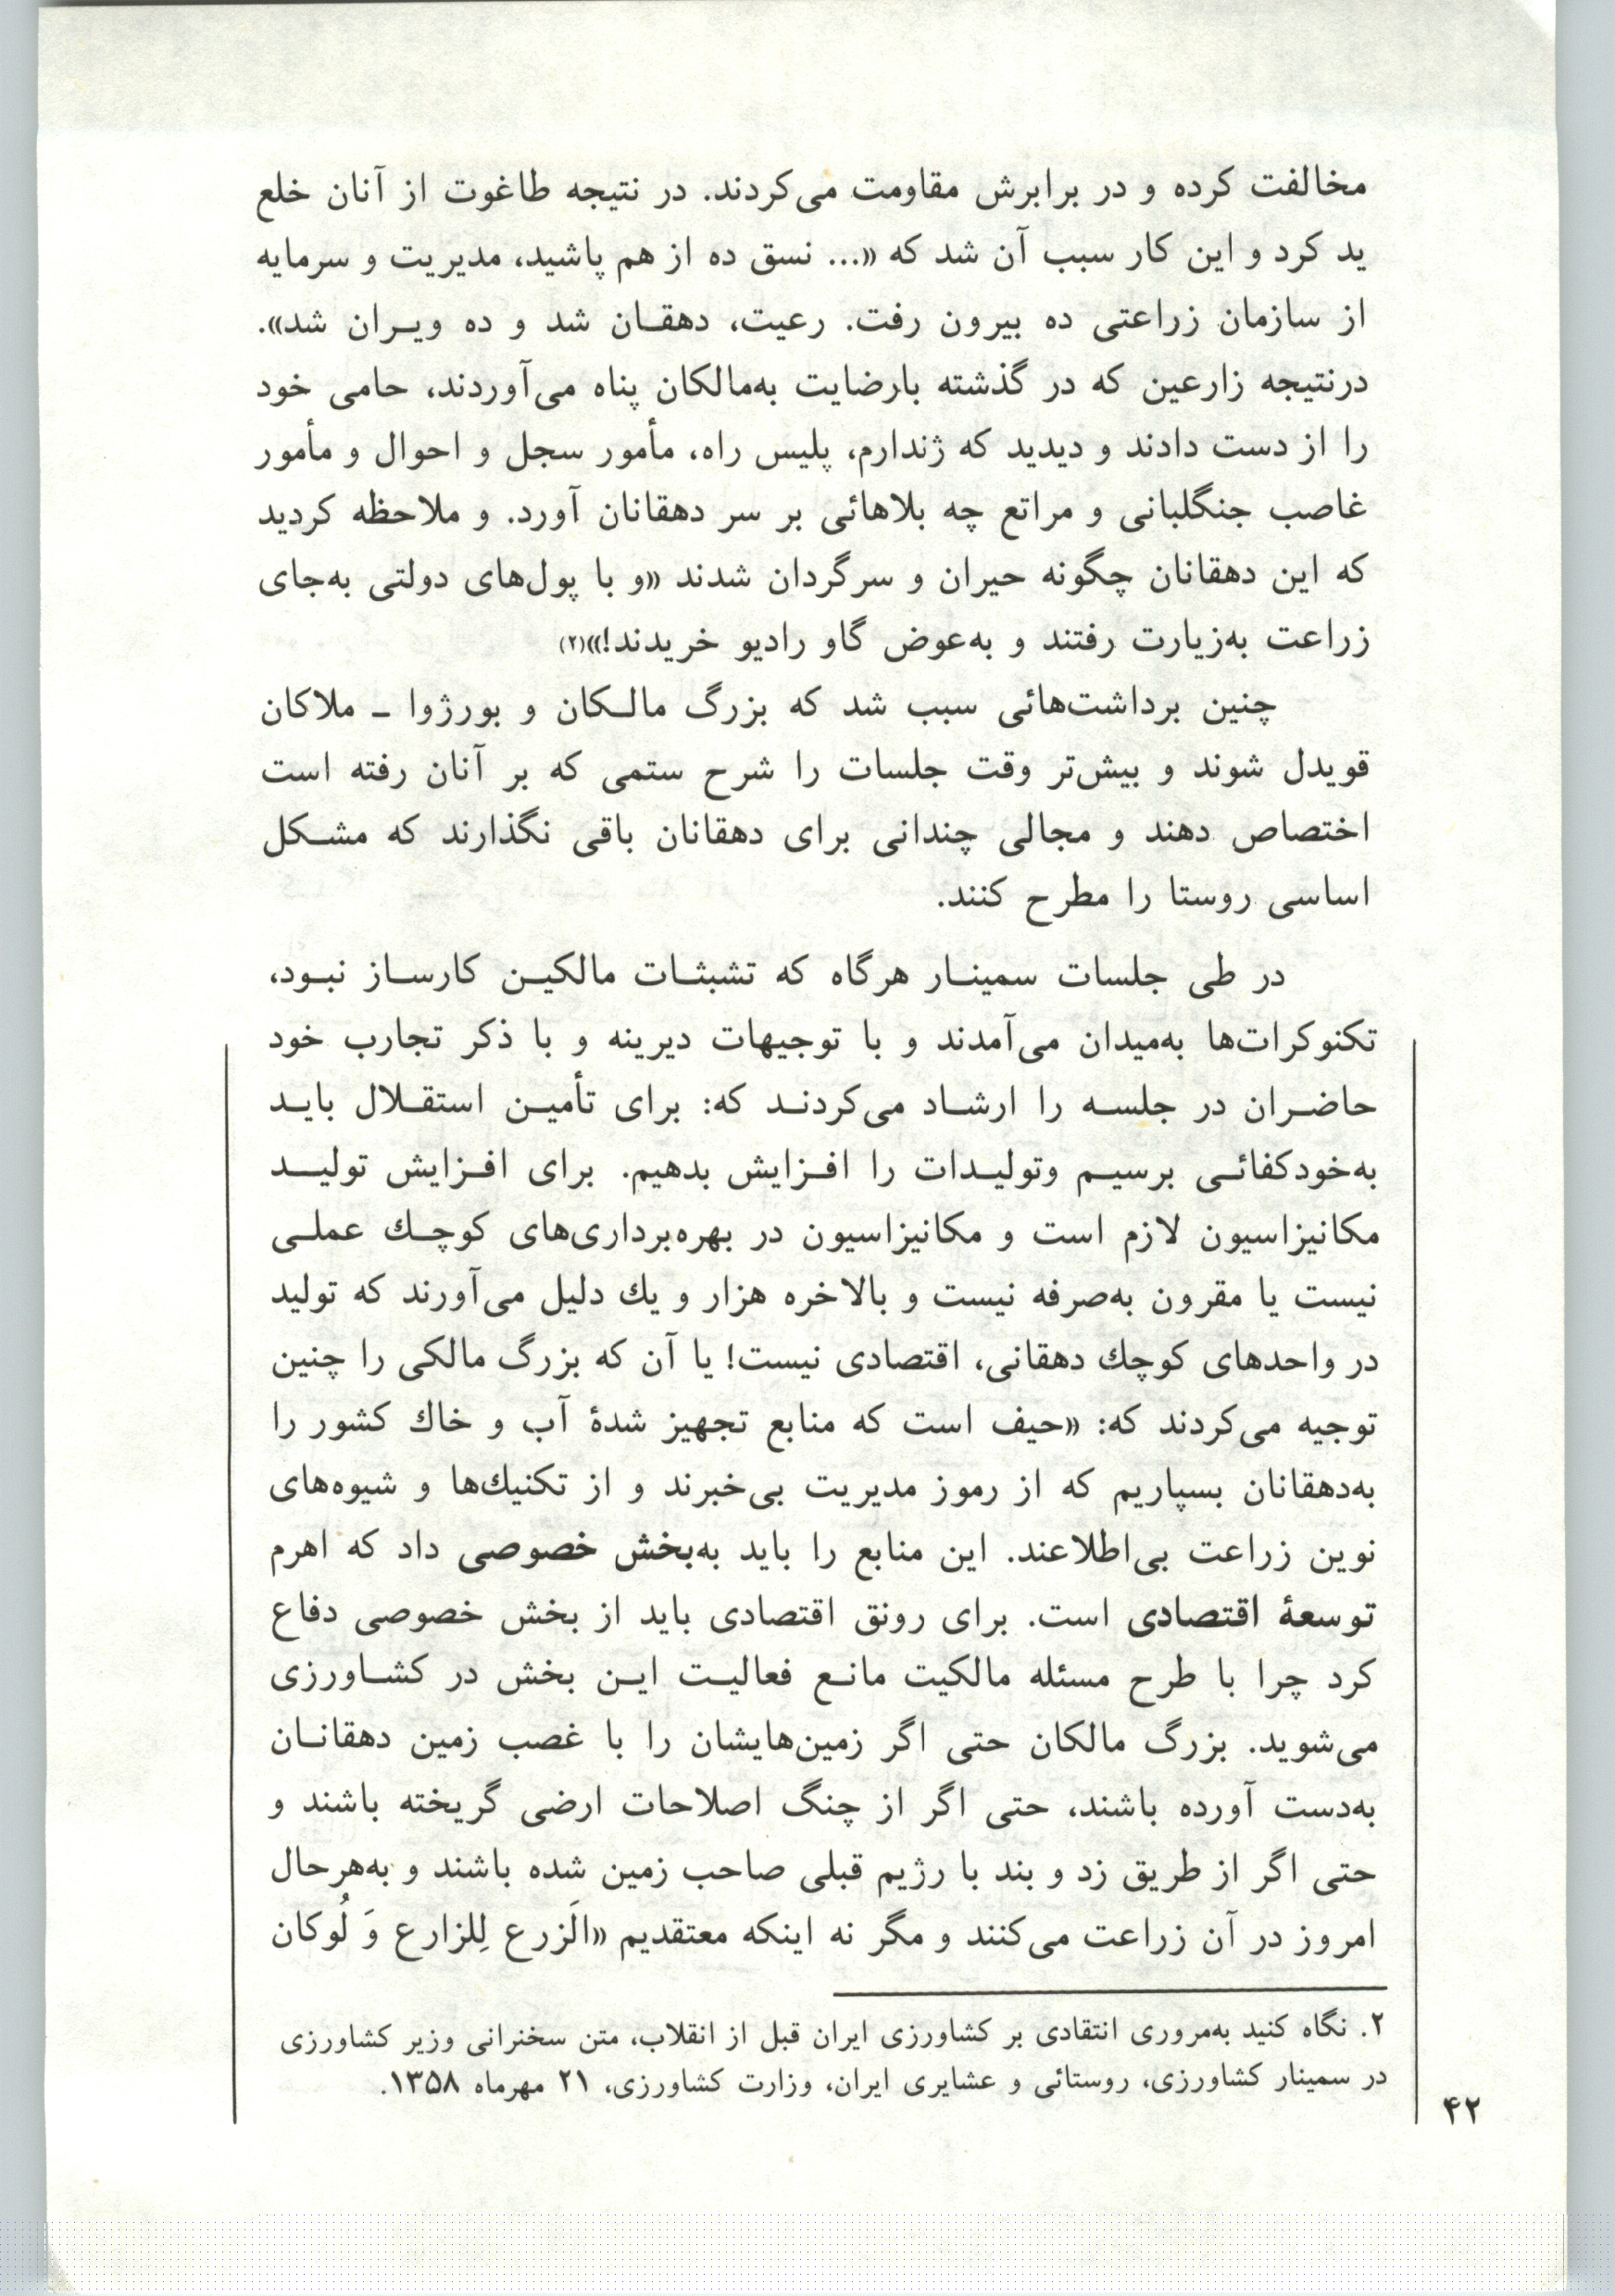 مخالفت کرده و در برابرش مقاومت می‌کردند. در نتیجه طاغوت از آنان خلع
ید کرد و این کار سبب آن شد که «... نسق ده از هم پاشید، مدیریت و سرمایه
از سازمان زراعتی ده بیرون رفت. رعیت، دهقان شد و ده ویران شد».
درنتیجه زارعین که در گذشته بارضایت به‌مالکان پناه می‌آوردند، حامی خود
را از دست دادند و دیدید که ژندارم، پلیس راه، مأمور سجل و احوال و مأمور
غاصب جنگلبانی و مراتع چه بلاهائی بر سر دهقانان آورد. و ملاحظه کردید
که این دهقانان چگونه حیران و سرگردان شدند «و با پول‌های دولتی به‌جای
زراعت به‌زیارت رفتند و به‌عوض گاو رادیو خریدند!»(۲)
چنین برداشت‌هائی سبب شد که بزرگ مالکان و بورژوا ـ ملاکان
قویدل شوند و بیش‌تر وقت جلسات را شرح ستمی که بر آنان رفته است
اختصاص دهند و مجالی چندانی برای دهقانان باقی نگذارند که مشکل
اساسی روستا را مطرح کنند.
در طی جلسات سمینار هرگاه که تشبثات مالکین کارساز نبود،
تکنوکرات‌ها به‌میدان می‌آمدند و با توجیهات دیرینه و با ذکر تجارب خود
حاضران در جلسه را ارشاد می‌کردند که: برای تأمین استقلال باید
به‌خودکفائی برسیم وتولیدات را افزایش بدهیم. برای افزایش تولید
مکانیزاسیون لازم است و مکانیزاسیون در بهره‌برداری‌های کوچك عملی
نیست یا مقرون به‌صرفه نیست و بالاخره هزار و یك دلیل می‌آورند که تولید
در واحدهای کوچك دهقانی، اقتصادی نیست! یا آن که بزرگ مالکی را چنین
توجیه می‌کردند که: «حیف است که منابع تجهیز شدهٔ آب و خاك کشور را
به‌دهقانان بسپاریم که از رموز مدیریت بی‌خبرند و از تکنیك‌ها و شیوه‌های
نوین زراعت بی‌اطلاعند. این منابع را باید به‌بخش خصوصی داد که اهرم
توسعهٔ اقتصادی است. برای رونق اقتصادی باید از بخش خصوصی دفاع
کرد چرا با طرح مسئله مالکیت مانع فعالیت این بخش در کشاورزی
می‌شوید. بزرگ مالکان حتی اگر زمین‌هایشان را با غصب زمین دهقانان
به‌دست آورده باشند، حتی اگر از چنگ اصلاحات ارضی گریخته باشند و
حتی اگر از طریق زد و بند با رژیم قبلی صاحب زمین شده باشند و به‌هرحال
امروز در آن زراعت می‌کنند و مگر نه اینکه معتقدیم «الَزرع لِلزارع وَ لُوکان
۲. نگاه کنید به‌مروری انتقادی بر کشاورزی ایران قبل از انقلاب، متن سخنرانی وزیر کشاورزی
در سمینار کشاورزی، روستائی و عشایری ایران، وزارت کشاورزی، ۲۱ مهرماه ۱۳۵۸.
۴۲